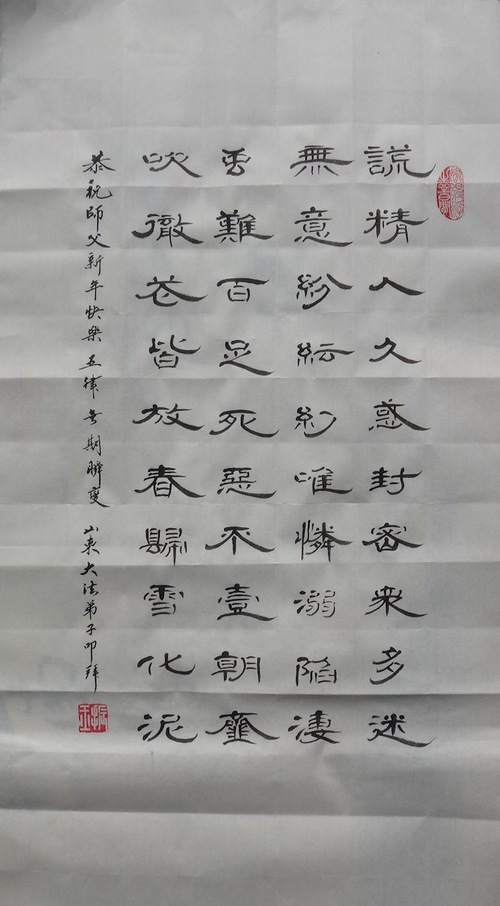 謊精人久惑封密眾多迷
無意紛紜幻唯憐溺陷淒
虫難百足死惡不壹朝齏
吹徹花皆放春歸雪化泥
恭祝師父新年快樂 五律 无期瞬變 山東大法弟子叩拜